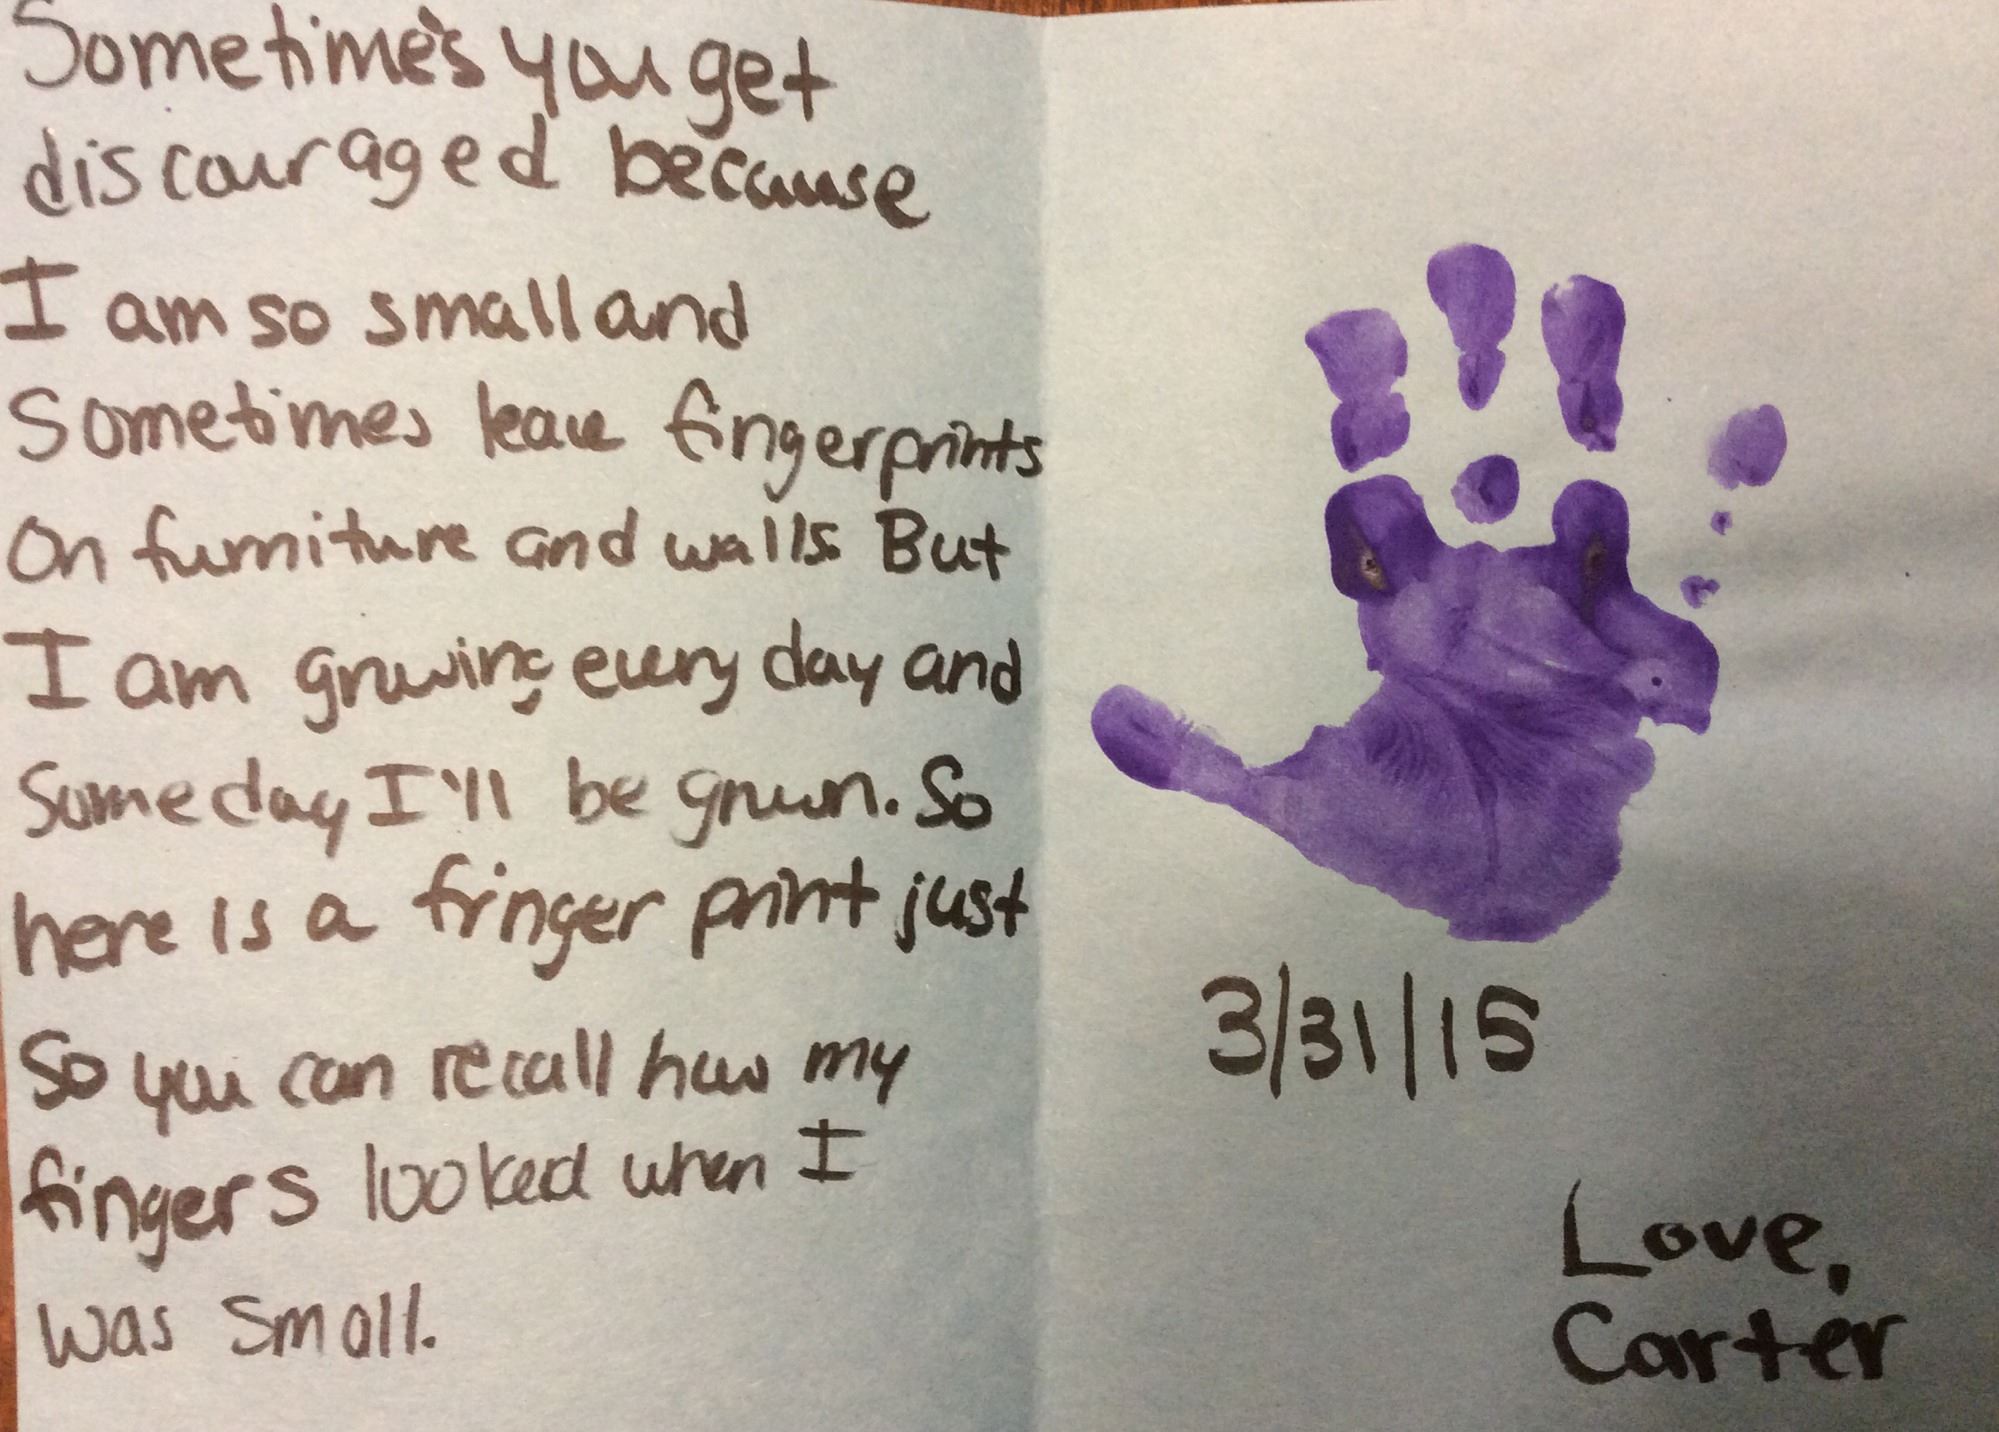 Sometimes you get
discouraged because
I am so small and
Sometimes leave fingerprints
On furniture and walls. But
I am growing every day and
Someday I'll be grown. So
here is a fringer print just
So you can recall how my
fingers looked when I
was small.
3/31/15
Love,
Carter